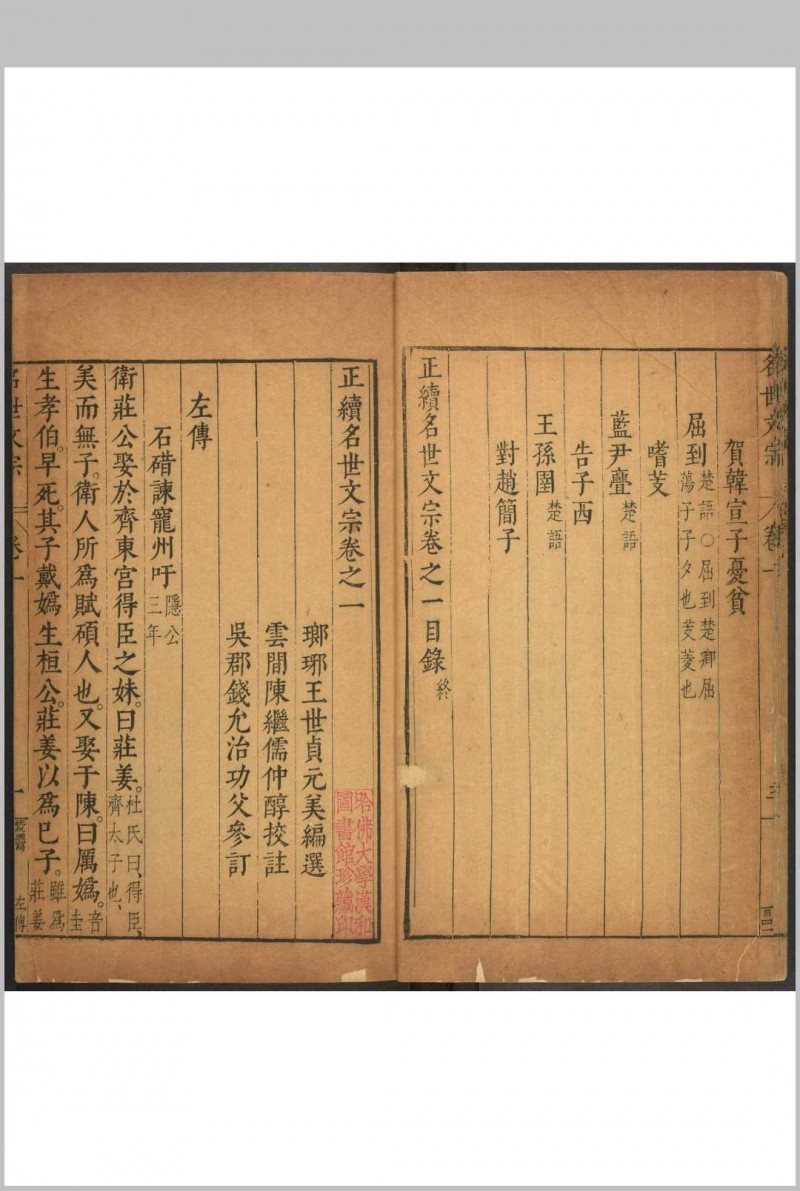 名世文宗 卷一
賀韓宣子憂貧
屈到 楚語○屈到楚卿屈
蕩子子夕也芰菱也
嗜芰
藍尹亹 楚語
告子西
王孫圉 楚語
對趙簡子
正續名世文宗卷之一目錄 終
正續名世文宗卷之一
瑯琊王世貞元美編選
雲間陳繼儒仲醇挍註
吳郡錢允治功父參訂
哈佛大學漢和
圖書館珍藏印
左傳
石碏諫寵州吁 隱公
三年
衛莊公娶於齊東宮得臣之妹。曰莊姜。杜氏曰、得臣、
齊太子也、
美而無子。衛人所為賦碩人也。又娶于陳。曰厲媯。音
圭
生孝伯。早死。其子戴媯生桓公。莊姜以為巳子。雖為
莊姜
名世文宗 卷一 一 左傳